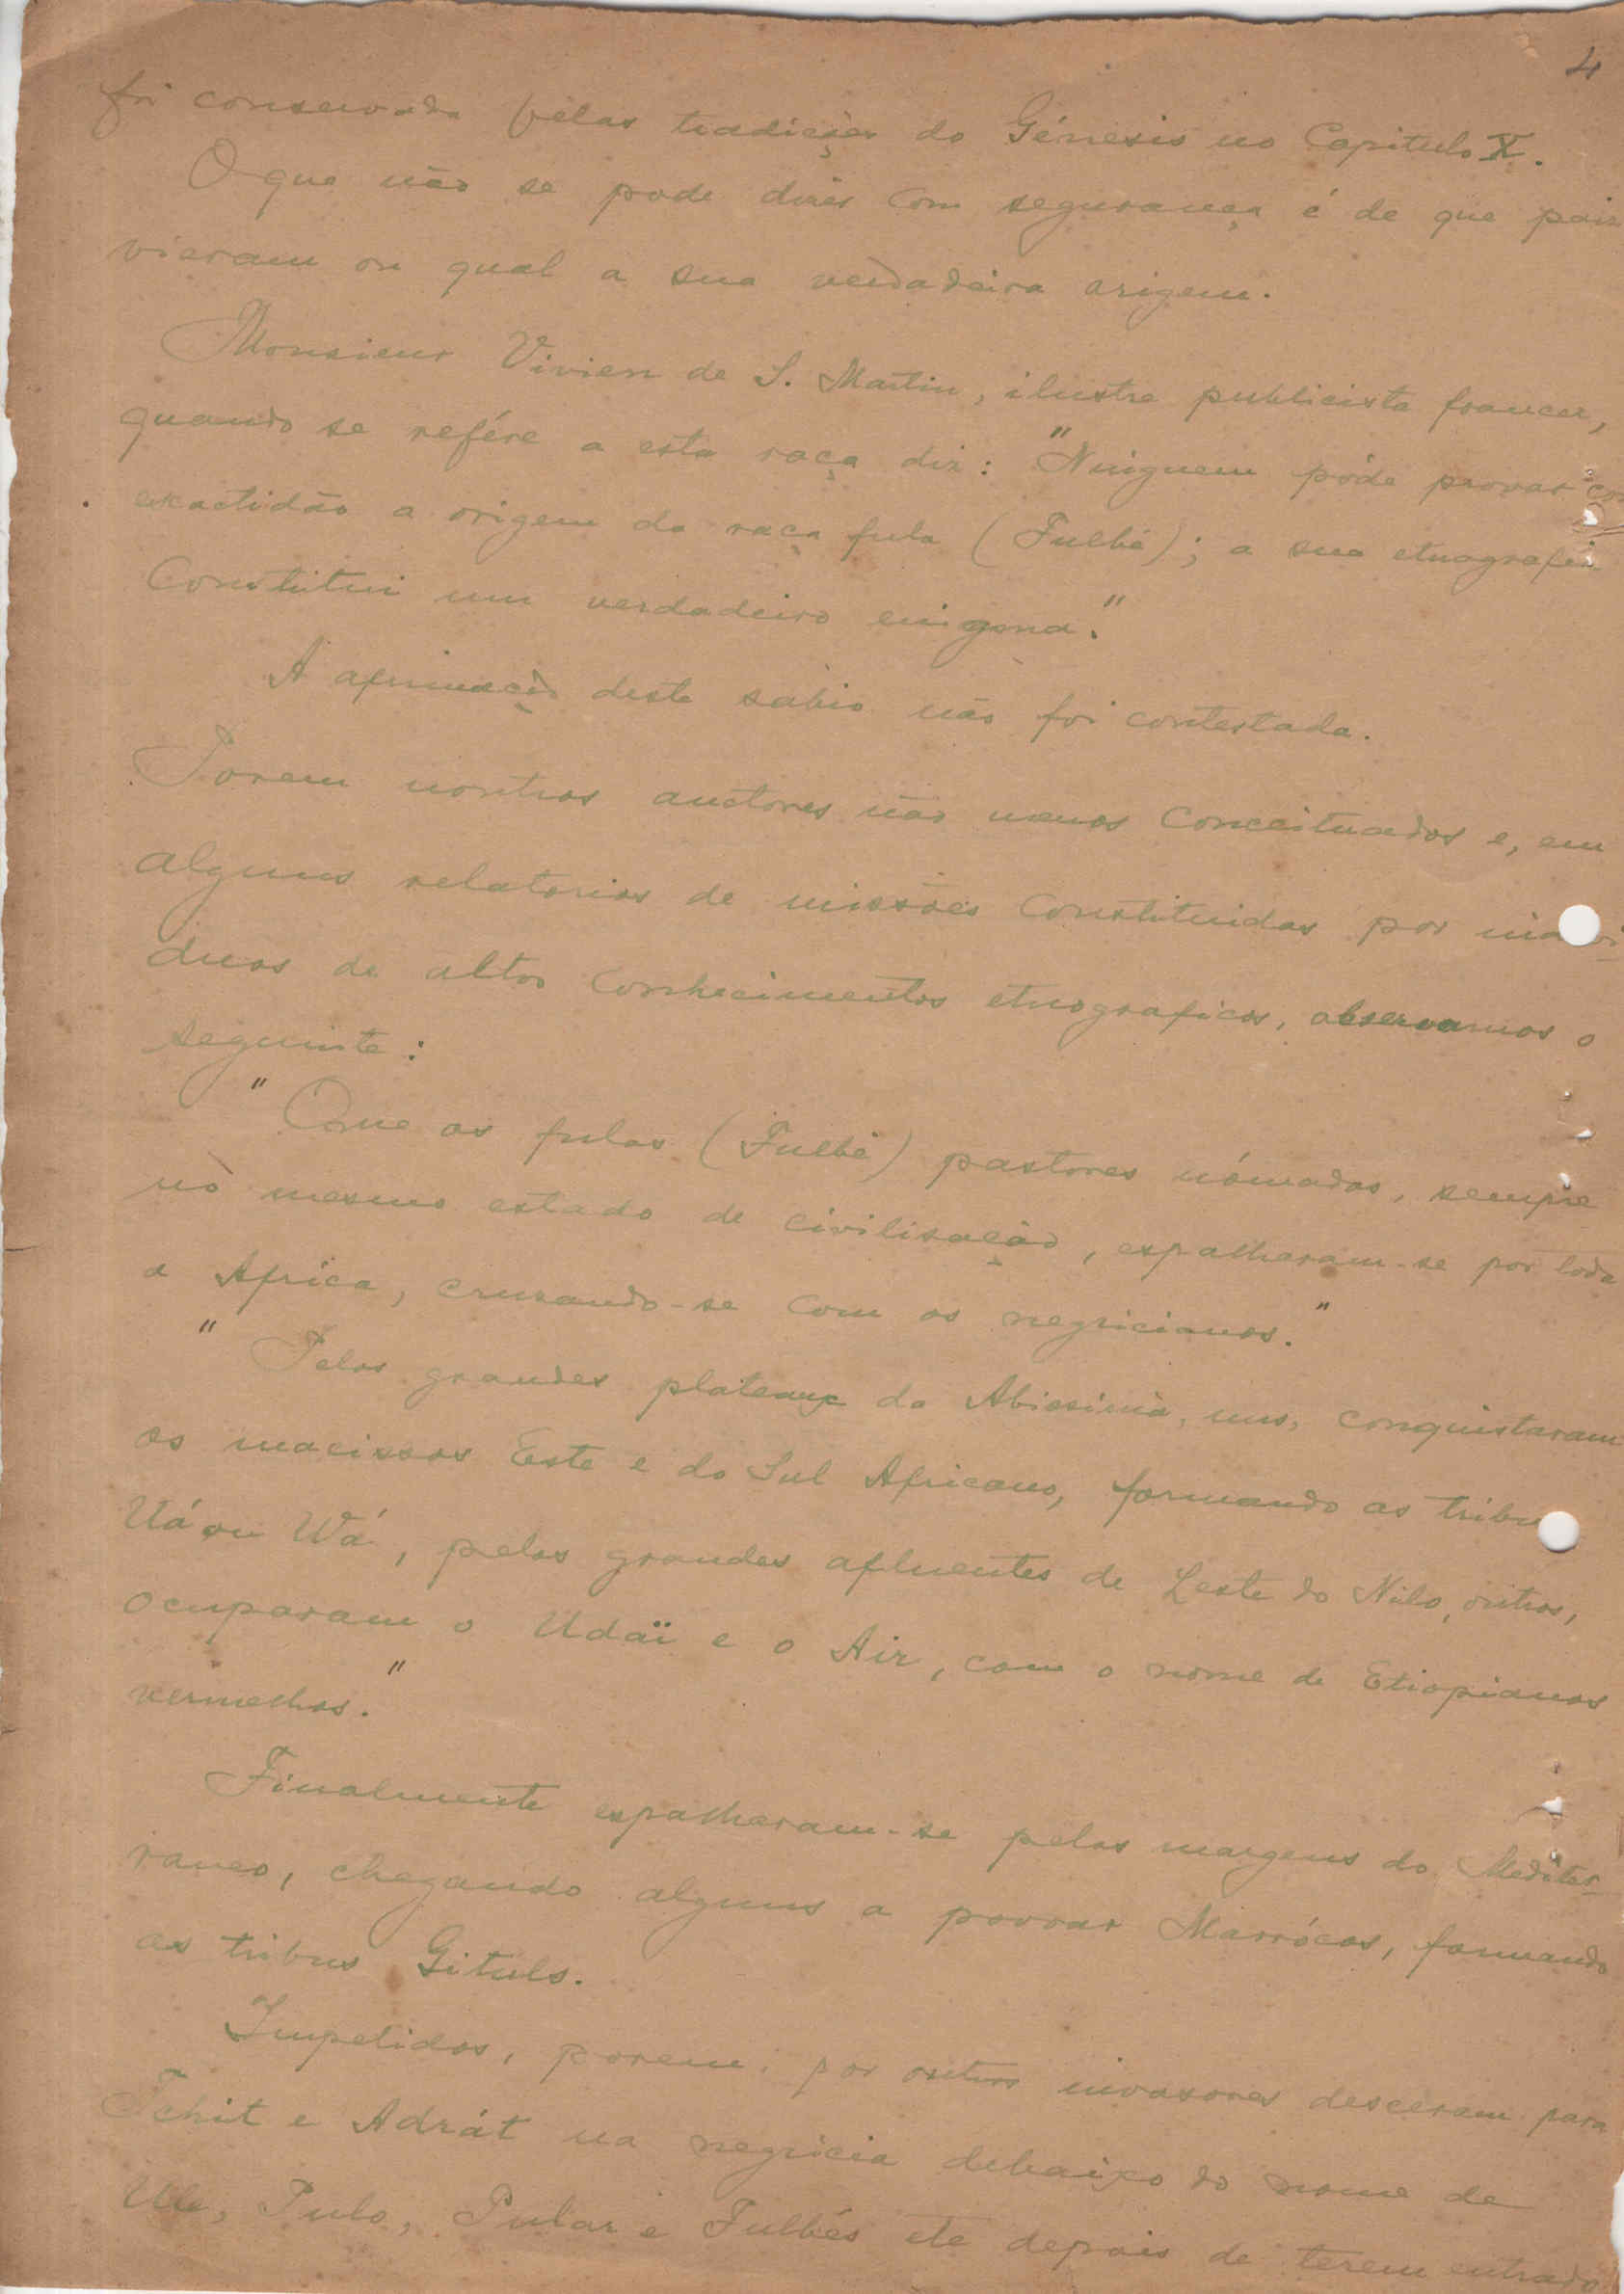 4
foi conservada pelas tradições do Génesis no Capitulo X.
O que não se pode dizer com segurança é de que paiz
vieram ou qual a sua verdadeira origem.
Monsieur Vivien de S. Martin, ilustre publicista francez,
quando se refére a esta raça diz: "Ninguem póde provar com
exactidão a origem da raça fula (Fulbé); a sua etnografia
Constitui um verdadeiro enigma."
A afirmação deste sabio não foi contestada.
Porem noutros auctores não menos Conceituados e, em
alguns relatorios de missões Constituidas por indivi-
duos de altos Conhecimentos etnograficos, observamos o
seguinte:
"Que os fulas (Fulbé) pastores nómadas, sempre
no mesmo estado de civilisação, espalharam-se por toda
a Africa, crusando-se com os negricianos."
"Pelos grandes plateaux da Abissinia, uns, conquistaram
os macissos Este e do Sul Africano, formando as tribus
Uá ou Wá, pelos grandes afluentes de Leste do Nilo, outros,
ocuparam o Udaï e o Air, com o nome de Etiopianos
vermelhos."
Finalmente espalharam-se pelas margens do Mediter-
raneo, chegando alguns a povoar Marrócos, formando
as tribus Gituls.
Impelidos, porem, por outros invasores desceram para
Tchit e Adrát na negricia debaixo do nome de
Ule, Pulo, Pular e Fulbés etc depois de terem entrado